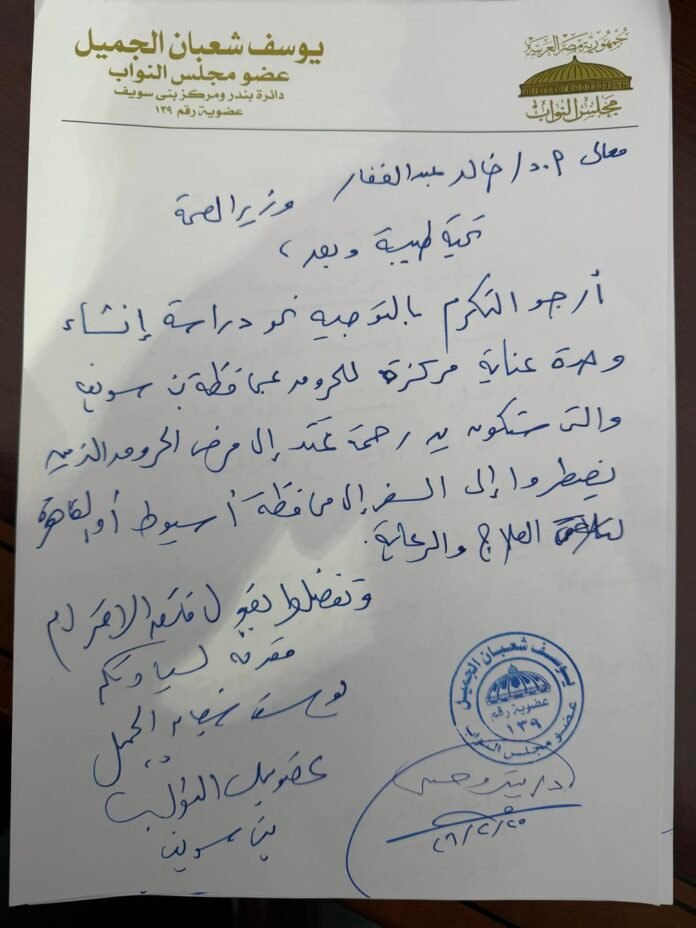 جمهورية مصر العربية
مجلس النواب
يوسف شعبان الجميل
عضو مجلس النواب
دائرة بندر ومركز بنى سويف
عضوية رقم ١٣٩
معالى أ.د/ خالد عبدالغفار وزير الصحة
تحية طيبة وبعد ،
أرجو التكرم بالتوجيه نحو دراسة إنشاء
وحدة عناية مركزة للحروق بمحافظة بنى سويف
والتى ستكون يد رحمة تمتد إلى مرضى الحروق الذين
يضطروا إلى السفر إلى محافظة أسيوط أو القاهرة
العلاج والرعاية.
وتفضلوا بقبول فائق الاحترام
مقدمه لسيادتكم
يوسف شعبان الجميل
عضو مجلس النواب
بنى سويف
يوسف شعبان الجميل
عضوية رقم
١٣٩
عضو مجلس النواب